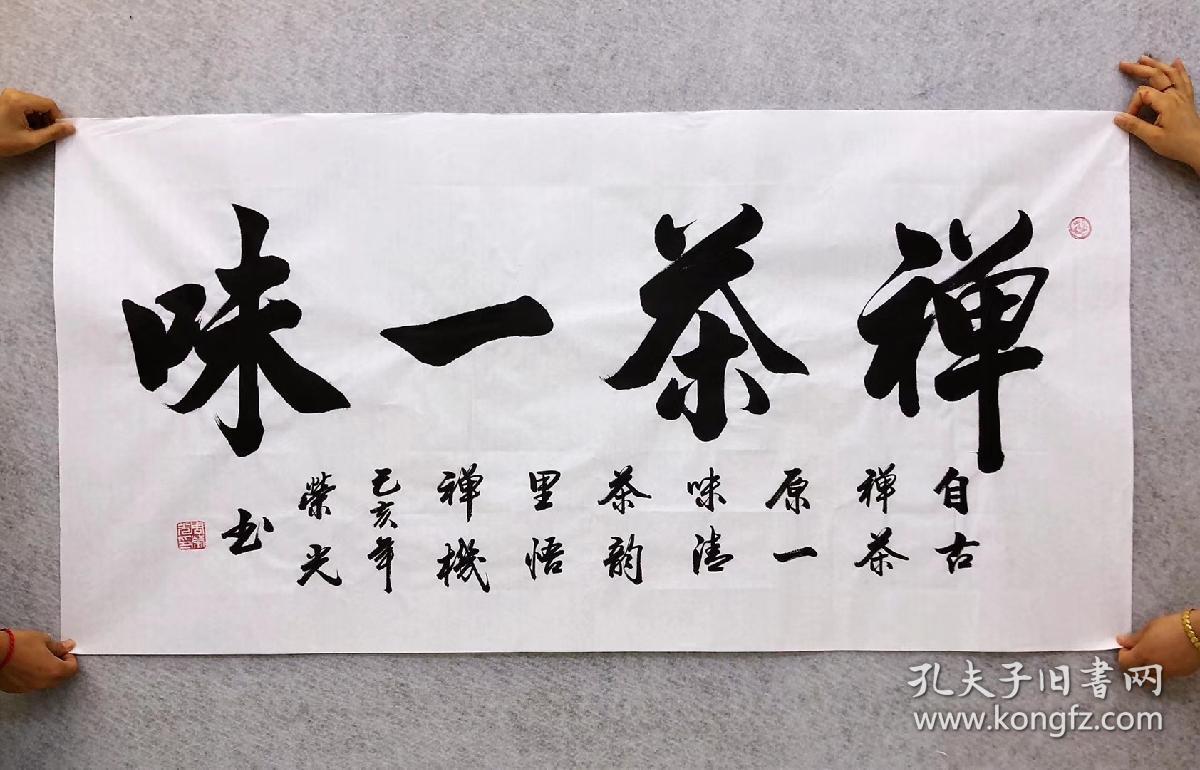 禅茶一味
自古
禅茶
原一
味清
茶韵
里悟
禅機
己亥年
荣光
书
孔夫子旧書网
www.kongfz.com